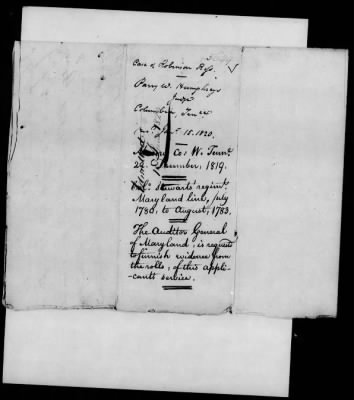 Case of Robinson Ross
Parry W. Humphreys
Judge
Columbia, Tenne
15. 1820.
Co: W. Tenne.
24 December, 1819.
Stewarts' regimt.
Maryland line, July
1780, to August, 1783.
The Auditor General
of Maryland, is requested
to furnish evidence from
the rolls, of this appli-
-cants service.